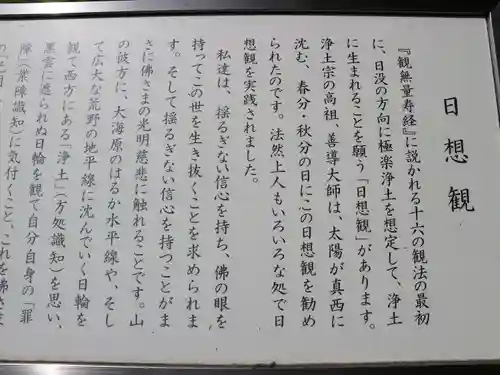 日想観
『観無量寿経』に説かれる十六の観法の最初
に、日没の方向に極楽浄土を想定して、浄土
に生まれることを願う「日想観」があります。
浄土宗の高祖、善導大師は、太陽が真西に
沈む、春分・秋分の日にこの日想観を勧め
られたのです。法然上人もいろいろな処で日
想観を実践されました。
私達は、揺るぎない信心を持ち、佛の眼を
持ってこの世を生き抜くことを求められま
す。そして揺るぎない信心を持つことがま
さに佛さまの光明慈悲に触れることです。山
の彼方に、大海原のはるか水平線や、そし
て広大な荒野の地平線に沈んでいく日輪を
観て西方にある「浄土」(方処識知)を思い、
黒雲に遮られぬ日輪を観て自分自身の「罪
障」(業障識知)に気付くこと、これを佛さま